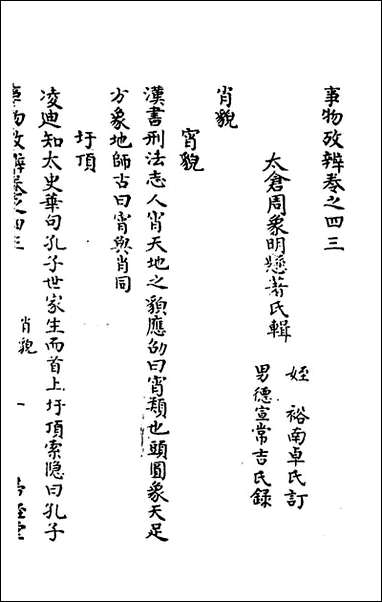 事物攷辨卷之四三
太倉周象明懸著氏輯
姪 裕南卓氏訂
男德宣常吉氏錄
肖貌
宵貌
漢書刑法志人宵天地之䫉應劭曰宵類也頭圓象天足
方象地師古曰宵與肖同
圩頂
凌迪知太史華句孔子世家生而首上圩頂索隐曰孔子
事物攷辨卷之四三
肖貌
一